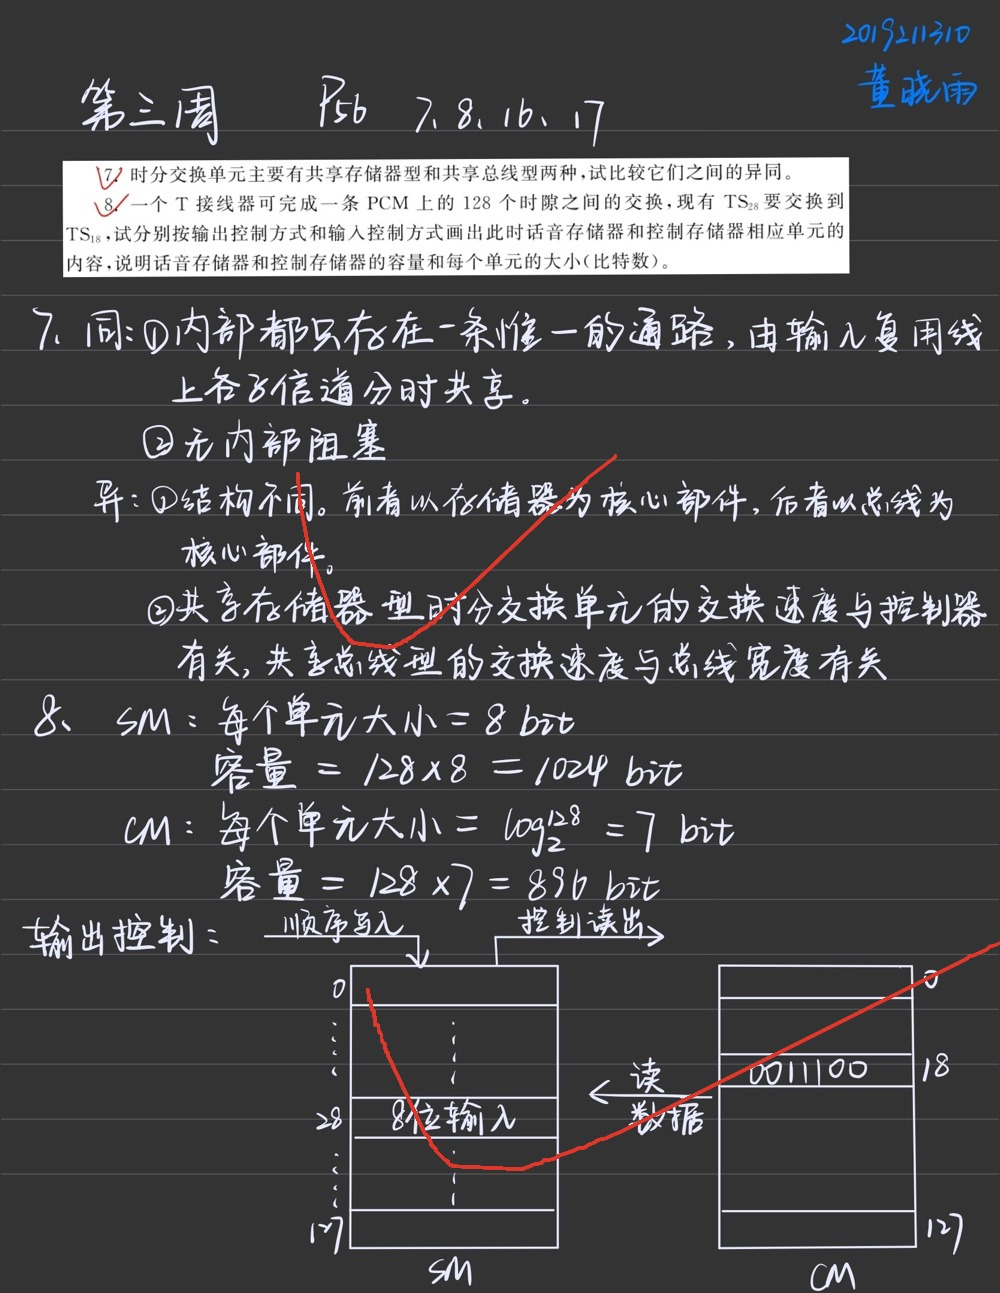 2019211310
董晓雨
第三周 P56 7、8、16、17
7. 时分交换单元主要有共享存储器型和共享总线型两种,试比较它们之间的异同。
8. 一个 T 接线器可完成一条 PCM 上的 128 个时隙之间的交换,现有 TS₂₈ 要交换到
TS₁₈,试分别按输出控制方式和输入控制方式画出此时话音存储器和控制存储器相应单元的
内容,说明话音存储器和控制存储器的容量和每个单元的大小(比特数)。
7、同:①内部都只存在一条惟一的通路,由输入复用线
上各子信道分时共享。
②无内部阻塞
异:①结构不同。前者以存储器为核心部件,后者以总线为
核心部件。
②共享存储器型时分交换单元的交换速度与控制器
有关,共享总线型的交换速度与总线宽度有关
8、 SM:每个单元大小 = 8 bit
容量 = 128×8 = 1024 bit
CM:每个单元大小 = log₂¹²⁸ = 7 bit
容量 = 128×7 = 896 bit
输出控制: 顺序写入 控制读出
0
28
127
8位输入
SM
读
数据
0011100
0
18
127
CM